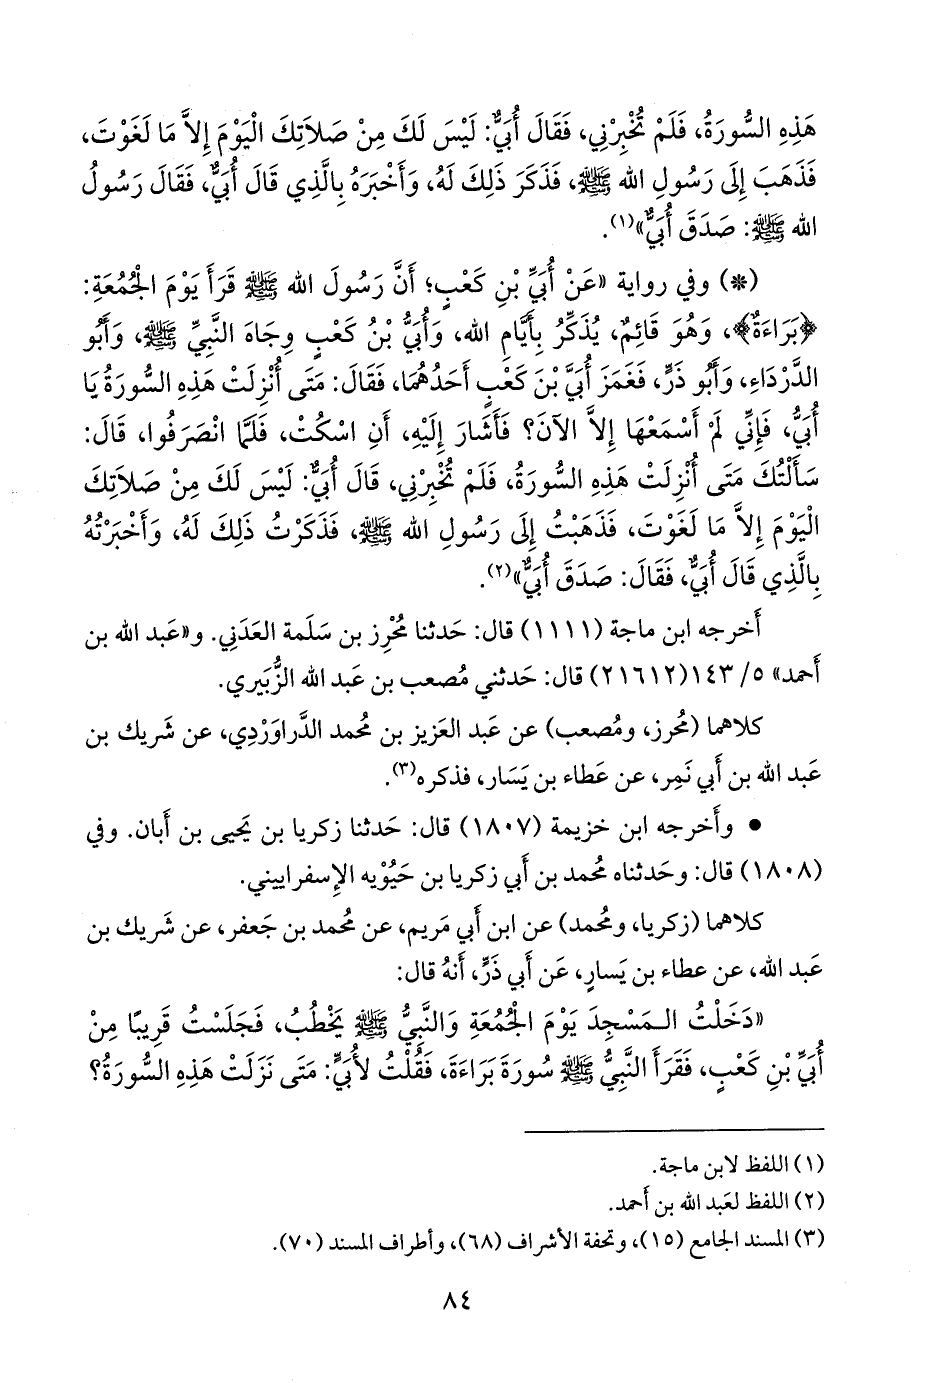 هَذِهِ السُّورَةُ، فَلَمْ تُخْبِرْنِي، فَقَالَ أُبَيٌّ: لَيْسَ لَكَ مِنْ صَلَاتِكَ الْيَوْمَ إِلاَّ مَا لَغَوْتَ،
فَذَهَبَ إِلَى رَسُولِ الله ﷺ، فَذَكَرَ ذَلِكَ لَهُ، وَأَخْبَرَهُ بِالَّذِي قَالَ أُبَيٌّ، فَقَالَ رَسُولُ
الله ﷺ: صَدَقَ أُبَيٌّ»(١).
(*) وفي رواية «عَنْ أُبَيِّ بْنِ كَعْبٍ؛ أَنَّ رَسُولَ الله ﷺ قَرَأَ يَوْمَ الْجُمُعَةِ:
﴿بَرَاءَةٌ﴾، وَهُوَ قَائِمٌ، يُذَكِّرُ بِأَيَّامِ الله، وَأُبَيُّ بْنُ كَعْبٍ وِجَاهَ النَّبِيِّ ﷺ، وَأَبُو
الدَّرْدَاءِ، وَأَبُو ذَرٍّ، فَغَمَزَ أُبَيَّ بْنَ كَعْبٍ أَحَدُهُمَا، فَقَالَ: مَتَى أُنْزِلَتْ هَذِهِ السُّورَةُ يَا
أُبَيُّ، فَإِنِّي لَمْ أَسْمَعْهَا إِلاَّ الآنَ؟ فَأَشَارَ إِلَيْهِ، أَنِ اسْكُتْ، فَلَمَّا انْصَرَفُوا، قَالَ:
سَأَلْتُكَ مَتَى أُنْزِلَتْ هَذِهِ السُّورَةُ، فَلَمْ تُخْبِرْنِي، قَالَ أُبَيٌّ: لَيْسَ لَكَ مِنْ صَلَاتِكَ
الْيَوْمَ إِلاَّ مَا لَغَوْتَ، فَذَهَبْتُ إِلَى رَسُولِ الله ﷺ، فَذَكَرْتُ ذَلِكَ لَهُ، وَأَخْبَرْتُهُ
بِالَّذِي قَالَ أُبَيٌّ، فَقَالَ: صَدَقَ أُبَيٌّ»(٢).
أَخرجه ابن ماجة (١١١١) قال: حَدثنا مُحْرِز بن سَلَمة العَدَني. و«عَبد الله بن
أَحمد» ٥/ ١٤٣(٢١٦١٢) قال: حَدثني مُصعب بن عَبد الله الزُّبَيري.
كلاهما (مُحرز، ومُصعب) عن عَبد العَزيز بن مُحمد الدَّراوَرْدِي، عن شَريك بن
عَبد الله بن أَبي نَمِر، عن عَطاء بن يَسَار، فذكره(٣).
• وأَخرجه ابن خزيمة (١٨٠٧) قال: حَدثنا زكريا بن يَحيى بن أَبان. وفي
(١٨٠٨) قال: وحَدثناه مُحمد بن أَبي زكريا بن حَيُّوْيه الإِسفراييني.
كلاهما (زكريا، ومُحمد) عن ابن أَبي مَريم، عن مُحمد بن جَعفر، عن شَريك بن
عَبد الله، عن عطاء بن يَسارٍ، عَن أَبي ذَرٍّ، أَنهُ قال:
«دَخَلْتُ الـمَسْجِدَ يَوْمَ الْجُمُعَةِ وَالنَّبِيُّ ﷺ يَخْطُبُ، فَجَلَسْتُ قَرِيبًا مِنْ
أُبَيِّ بْنِ كَعْبٍ، فَقَرَأَ النَّبِيُّ ﷺ سُورَةَ بَرَاءَةَ، فَقُلْتُ لأُبَيٍّ: مَتَى نَزَلَتْ هَذِهِ السُّورَةُ؟
(١) اللفظ لابن ماجة.
(٢) اللفظ لعَبد الله بن أَحمد.
(٣) المسند الجامع (١٥)، وتحفة الأشراف (٦٨)، وأطراف المسند (٧٠).
٨٤